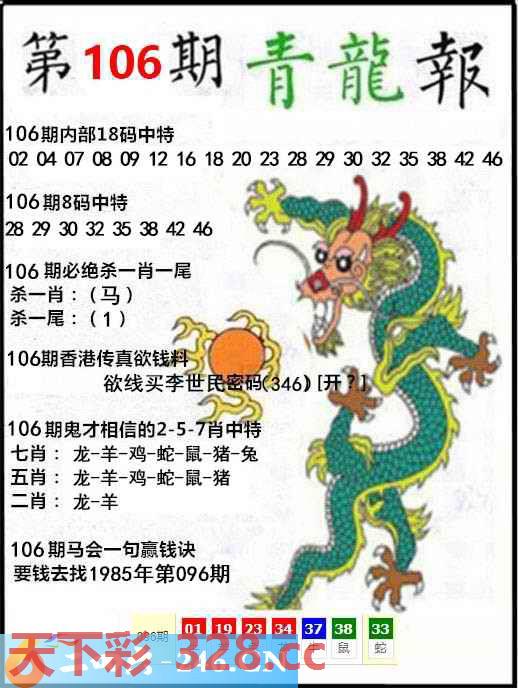 第106期 青龍報
106期内部18码中特
02 04 07 08 09 12 16 18 20 23 28 29 30 32 35 38 42 46
106期8码中特
28 29 30 32 35 38 42 46
106期必绝杀一肖一尾
杀一肖：（马）
杀一尾：（1）
106期香港传真欲钱料
欲线买李世民密码(346) [开?]
106期鬼才相信的2-5-7肖中特
七肖：龙-羊-鸡-蛇-鼠-猪-兔
五肖：龙-羊-鸡-蛇-鼠-猪
二肖：龙-羊
106期马会一句赢钱诀
要钱去找1985年第096期
096期 01 19 23 34 37 38 33
牛 鼠 蛇
天下彩-328.cc